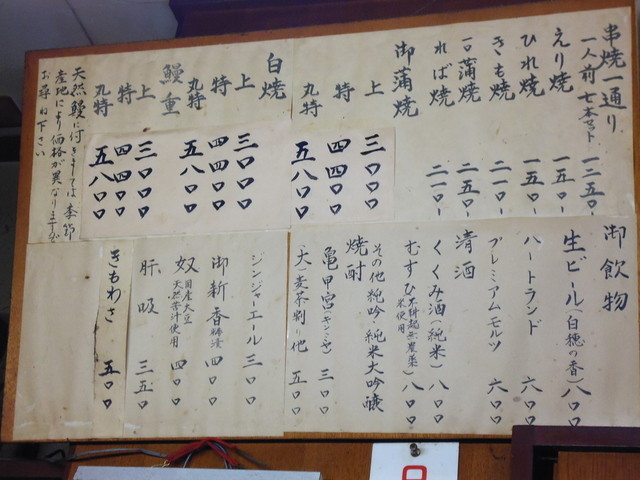 串焼一通り
一人前 七本セット 一二五〇-
えり焼 一五〇-
ひれ焼 一五〇-
きも焼 二一〇-
一口蒲焼 二五〇-
れば焼 二一〇-
御蒲焼
上 三〇〇〇
特 四四〇〇
丸特 五八〇〇
白焼
上 三〇〇〇
特 四四〇〇
丸特 五八〇〇
鰻重
上 三〇〇〇
特 四四〇〇
丸特 五八〇〇
天然鰻に付きましては季節
産地により価格が異なりますので
お尋ね下さい
御飲物
生ビール(白穂の香) 八〇〇
ハートランド 六〇〇
プレミアムモルツ 六〇〇
清酒
くくみ酒(純米) 八〇〇
むすひ 八〇〇
その他 純吟 純米大吟醸
焼酎
亀甲宮(キンミヤ) 三〇〇
(大)麦茶割り他 五〇〇
ジンジャーエール 三〇〇
御新香 四〇〇
奴 国産大豆 天然苦汁使用 四〇〇
肝吸 三五〇
きもわさ 五〇〇